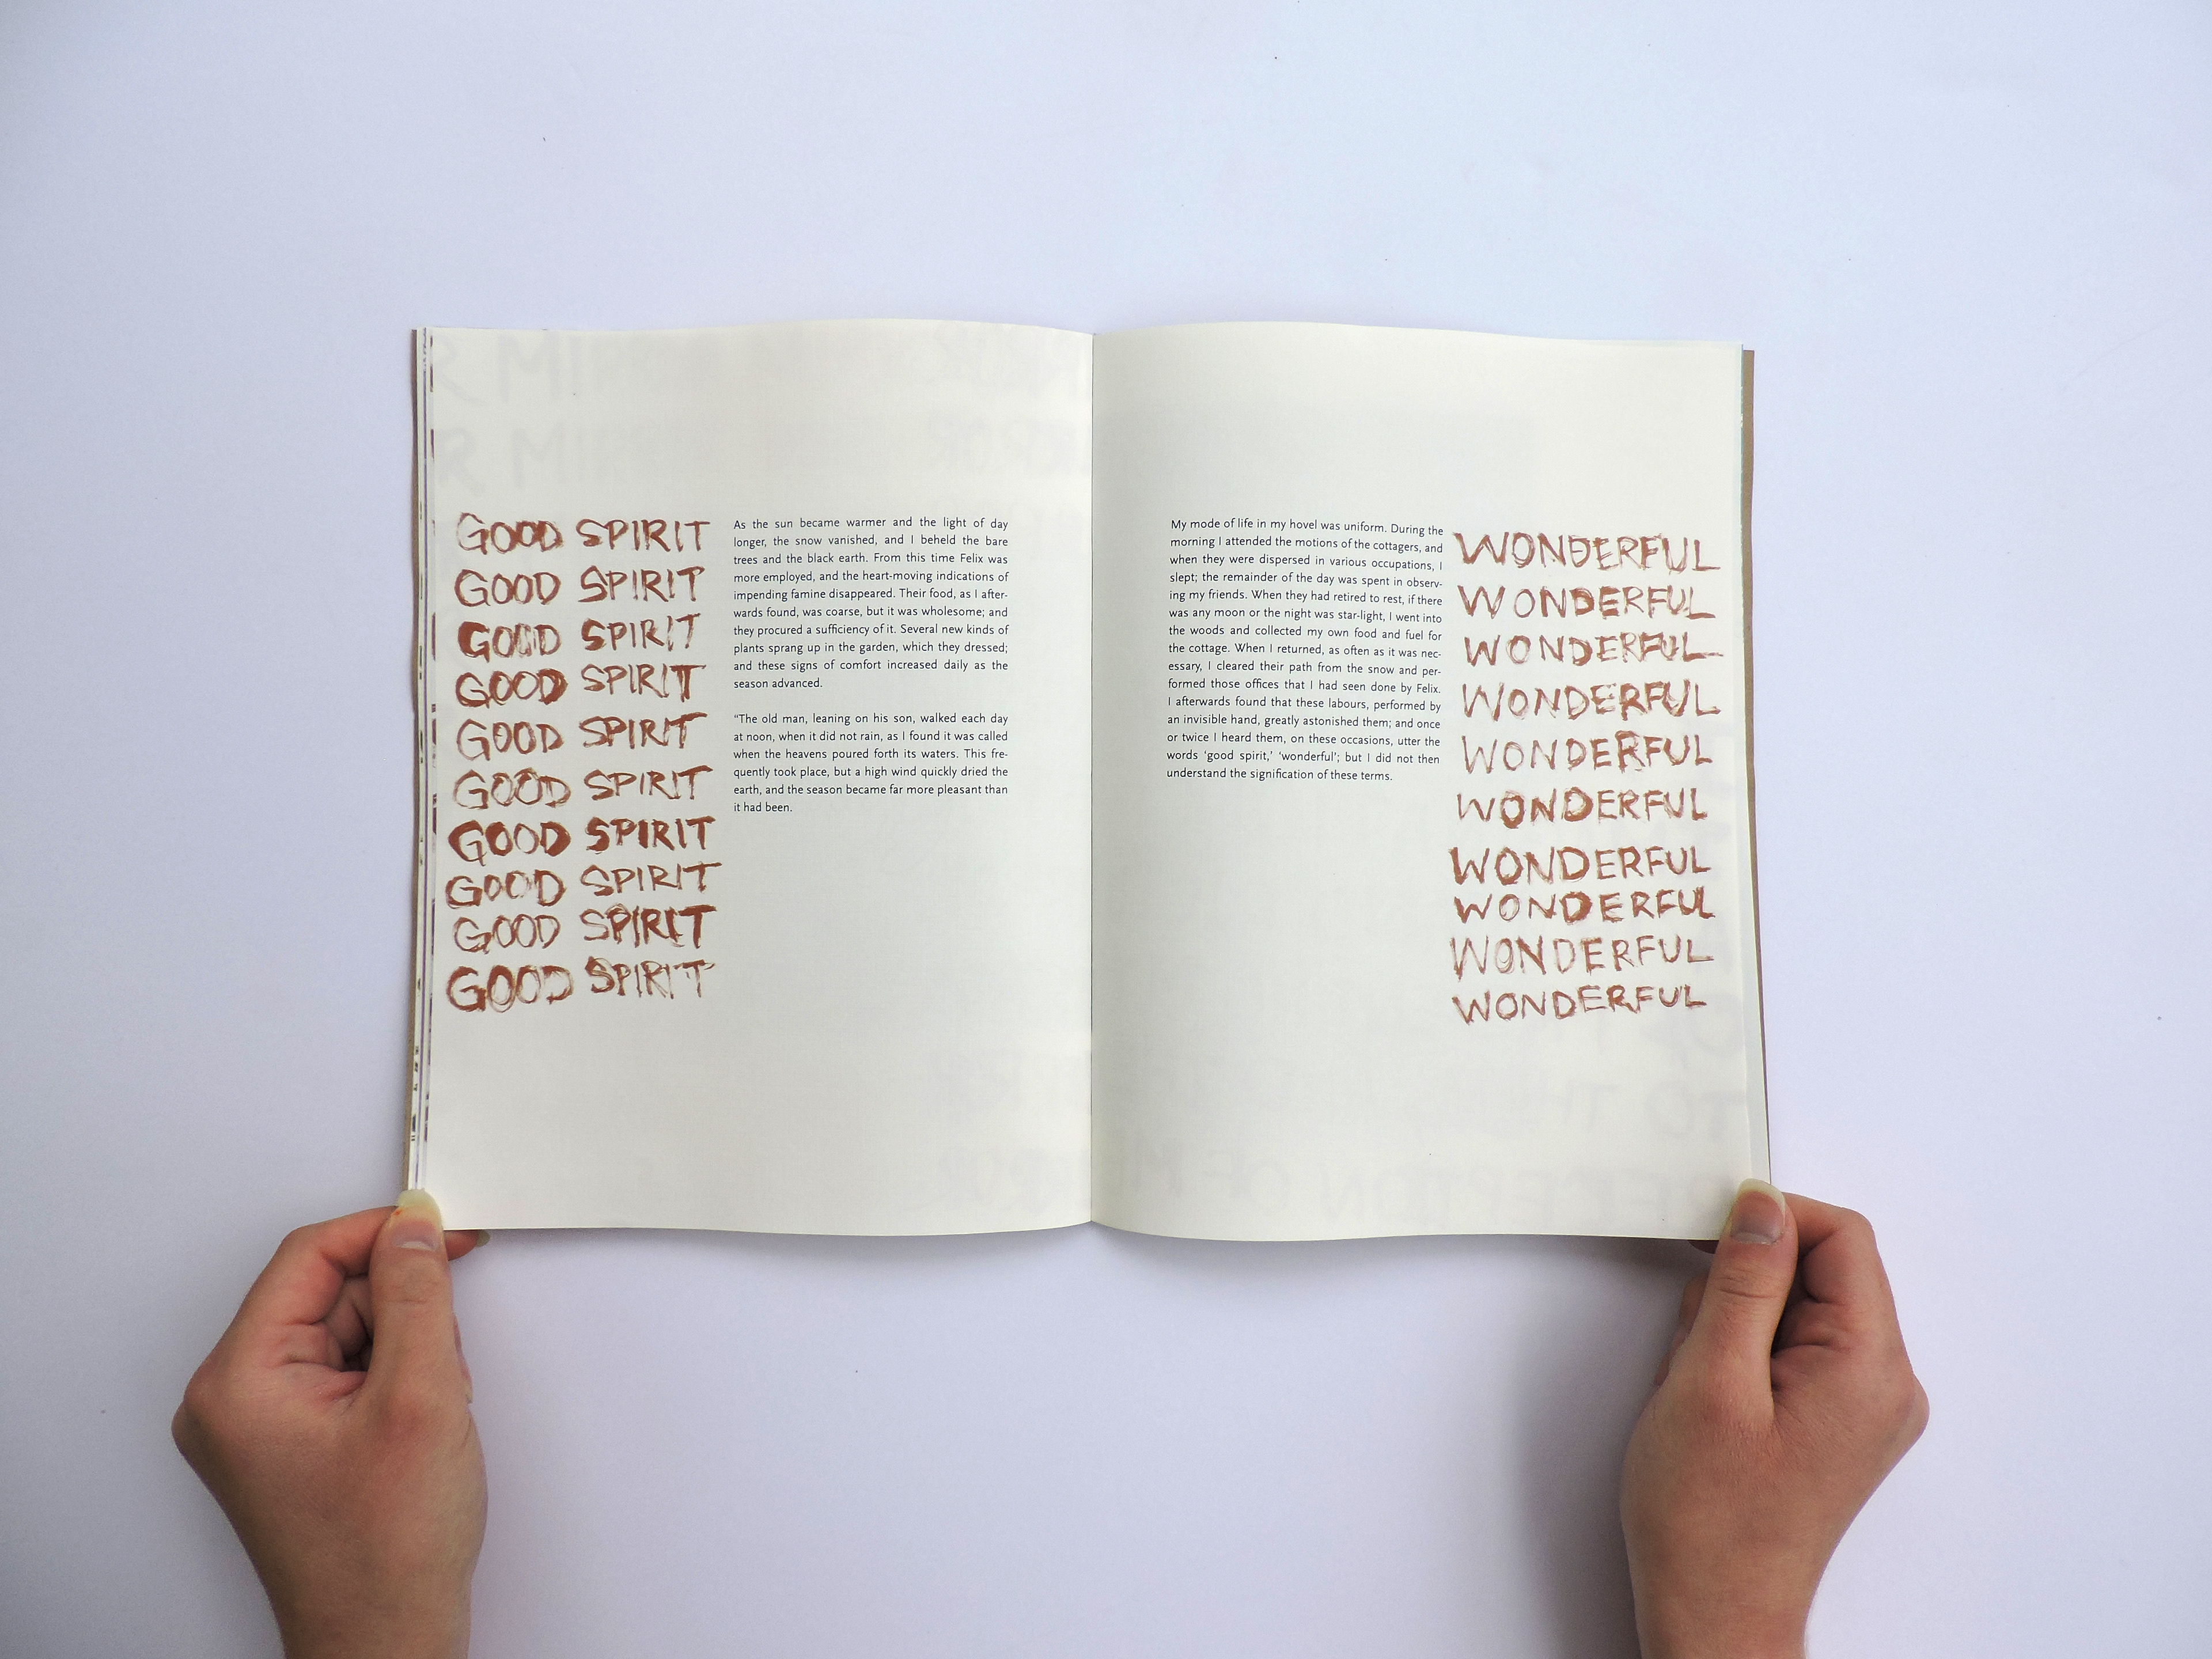 GOOD SPIRIT
GOOD SPIRIT
GOOD SPIRIT
GOOD SPIRIT
GOOD SPIRIT
GOOD SPIRIT
GOOD SPIRIT
GOOD SPIRIT
GOOD SPIRIT
GOOD SPIRIT
As the sun became warmer and the light of day
longer, the snow vanished, and I beheld the bare
trees and the black earth. From this time Felix was
more employed, and the heart-moving indications of
impending famine disappeared. Their food, as I after-
wards found, was coarse, but it was wholesome; and
they procured a sufficiency of it. Several new kinds of
plants sprang up in the garden, which they dressed;
and these signs of comfort increased daily as the
season advanced.
“The old man, leaning on his son, walked each day
at noon, when it did not rain, as I found it was called
when the heavens poured forth its waters. This fre-
quently took place, but a high wind quickly dried the
earth, and the season became far more pleasant than
it had been.
My mode of life in my hovel was uniform. During the
morning I attended the motions of the cottagers, and
when they were dispersed in various occupations, I
slept; the remainder of the day was spent in observ-
ing my friends. When they had retired to rest, if there
was any moon or the night was star-light, I went into
the woods and collected my own food and fuel for
the cottage. When I returned, as often as it was nec-
essary, I cleared their path from the snow and per-
formed those offices that I had seen done by Felix.
I afterwards found that these labours, performed by
an invisible hand, greatly astonished them; and once
or twice I heard them, on these occasions, utter the
words ‘good spirit,’ ‘wonderful’; but I did not then
understand the signification of these terms.
WONDERFUL
WONDERFUL
WONDERFUL
WONDERFUL
WONDERFUL
WONDERFUL
WONDERFUL
WONDERFUL
WONDERFUL
WONDERFUL